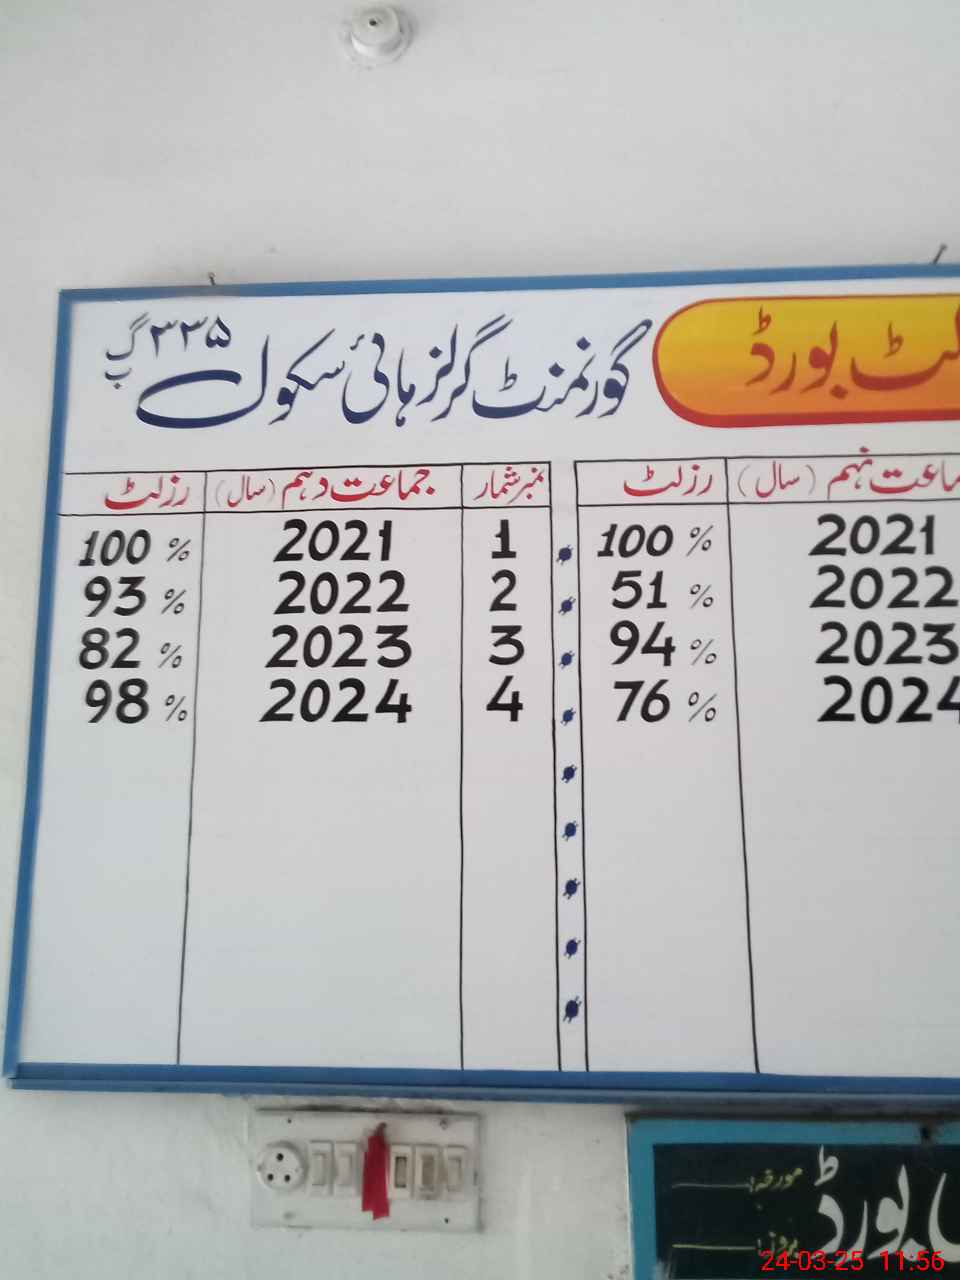 بورڈ
گورنمنٹ گرلز ہائی سکول ۳۳۵ گ ب
(سال) رزلٹ
نمبر شمار جماعت دہم (سال) رزلٹ
2021 100 %
2022 51 %
2023 94 %
2024 76 %
1 2021 100 %
2 2022 93 %
3 2023 82 %
4 2024 98 %
بورڈ
مورخہ:
بروز:
24-03-25 11:56